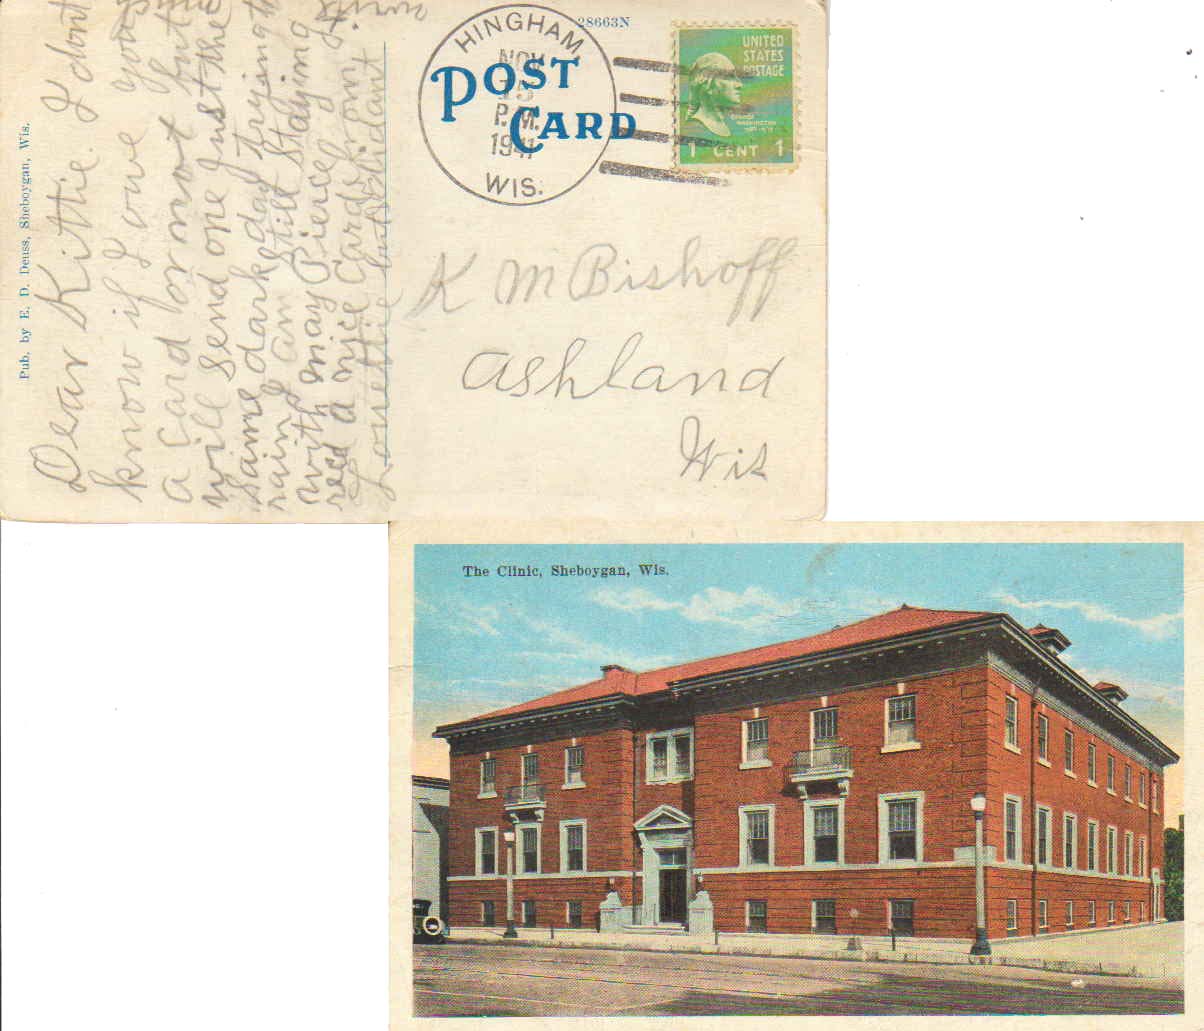 28663N
HINGHAM
NOV
15
P.M.
1941
WIS.
POST
CARD
UNITED
STATES
POSTAGE
GEORGE
WASHINGTON
1 CENT 1
Pub. by E. D. Deuss, Sheboygan, Wis.
Dear Kittie. I dont
know if I owe you
a card or not but
will send one Just the
same dark day trying to
rain I am still staying
with may Pierce
recd a nice card from
Louettie
K M Bishoff
Ashland
Wis
The Clinic, Sheboygan, Wis.